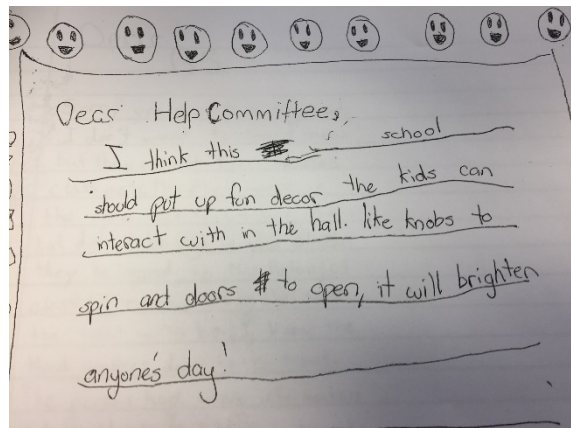 Dear Help Committee,
I think this school
should put up fun decor the kids can
interact with in the hall. like knobs to
spin and doors to open, it will brighten
anyone's day!